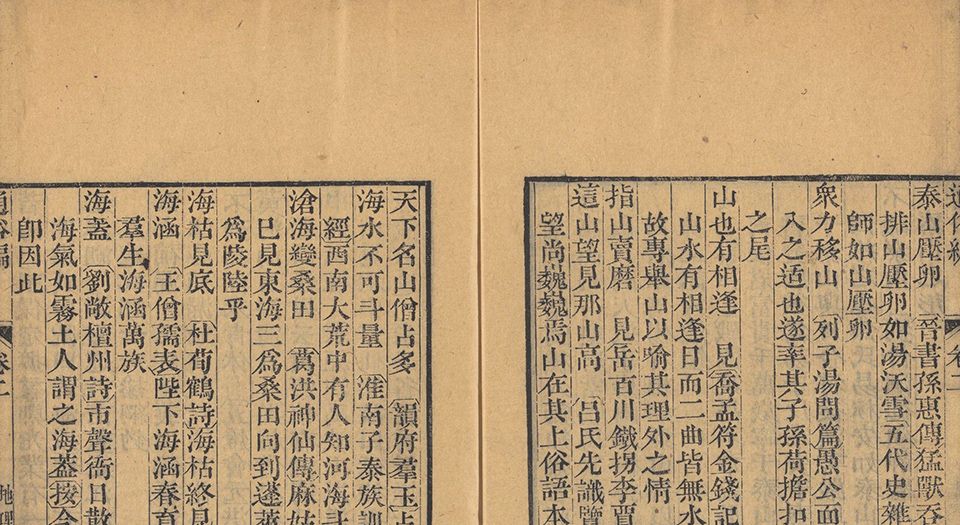 泰山壓卵 晉書孫惠傳猛獸吞
排山壓卵如湯沃雪五代史雜
師如山壓卵
衆力移山 列子湯問篇愚公面
入之迂也遂率其子孫荷擔扣
之尾
山也有相逢 見喬孟符金錢記
山水有相逢日而二曲皆無水
故專舉山以喻其理外之情
指山賣磨 見岳百川鐵拐李賈
這山望見那山高 呂氏先識覽
望尚巍巍焉山在其上俗語本
天下名山僧占多 韻府羣玉占
海水不可斗量 淮南子泰族訓
經西南大荒中有人知河海斗
滄海變桑田 葛洪神仙傳麻姑
巳見東海三爲桑田向到蓬萊
爲陵陸乎
海枯見底 杜荀鶴詩海枯終見
海涵 王僧孺表陛下海涵春育
羣生海涵萬族
海蓋 劉敞檀州詩市聲衙日散
海氣如霧土人謂之海蓋按今
卽因此
通俗編 卷二 地理